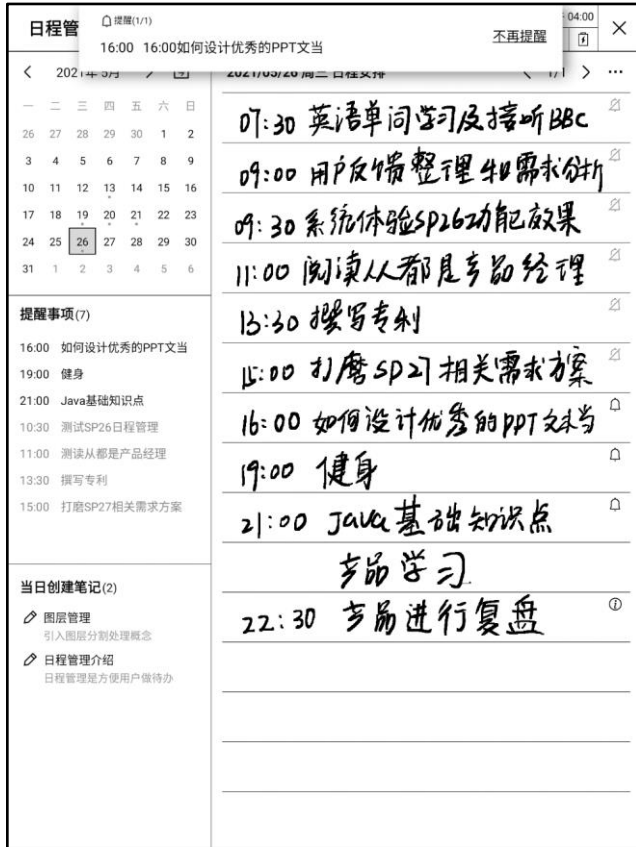 日程管
提醒(1/1)
16:00 16:00如何设计优秀的PPT文当
不再提醒
04:00
2021年 5月
2021/05/26 周三 日程安排
1/1
一 二 三 四 五 六 日
26 27 28 29 30 1 2
3 4 5 6 7 8 9
10 11 12 13 14 15 16
17 18 19 20 21 22 23
24 25 26 27 28 29 30
31 1 2 3 4 5 6
提醒事项(7)
16:00 如何设计优秀的PPT文当
19:00 健身
21:00 Java基础知识点
10:30 测试SP26日程管理
11:00 测读从都是产品经理
13:30 撰写专利
15:00 打磨SP27相关需求方案
当日创建笔记(2)
图层管理
引入图层分割处理概念
日程管理介绍
日程管理是方便用户做待办
07:30 英语单词学习及接听BBC
09:00 用户反馈整理和需求分析
09:30 系统体验SP26功能效果
11:00 阅读人人都是产品经理
13:30 撰写专利
15:00 打磨SP27相关需求方案
16:00 如何设计优秀的PPT文档
19:00 健身
21:00 Java基础知识点
产品学习
22:30 产品进行复盘